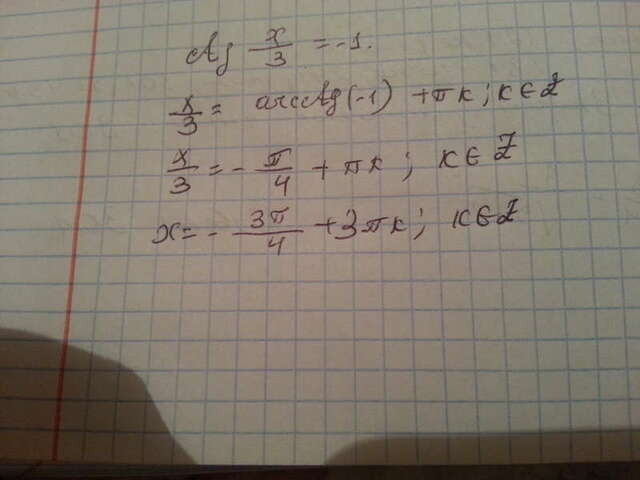 tg x/3 = -1.
x/3 = arctg(-1) + πk; k∈Z
x/3 = - π/4 + πk; k∈Z
x = - 3π/4 + 3πk; k∈Z